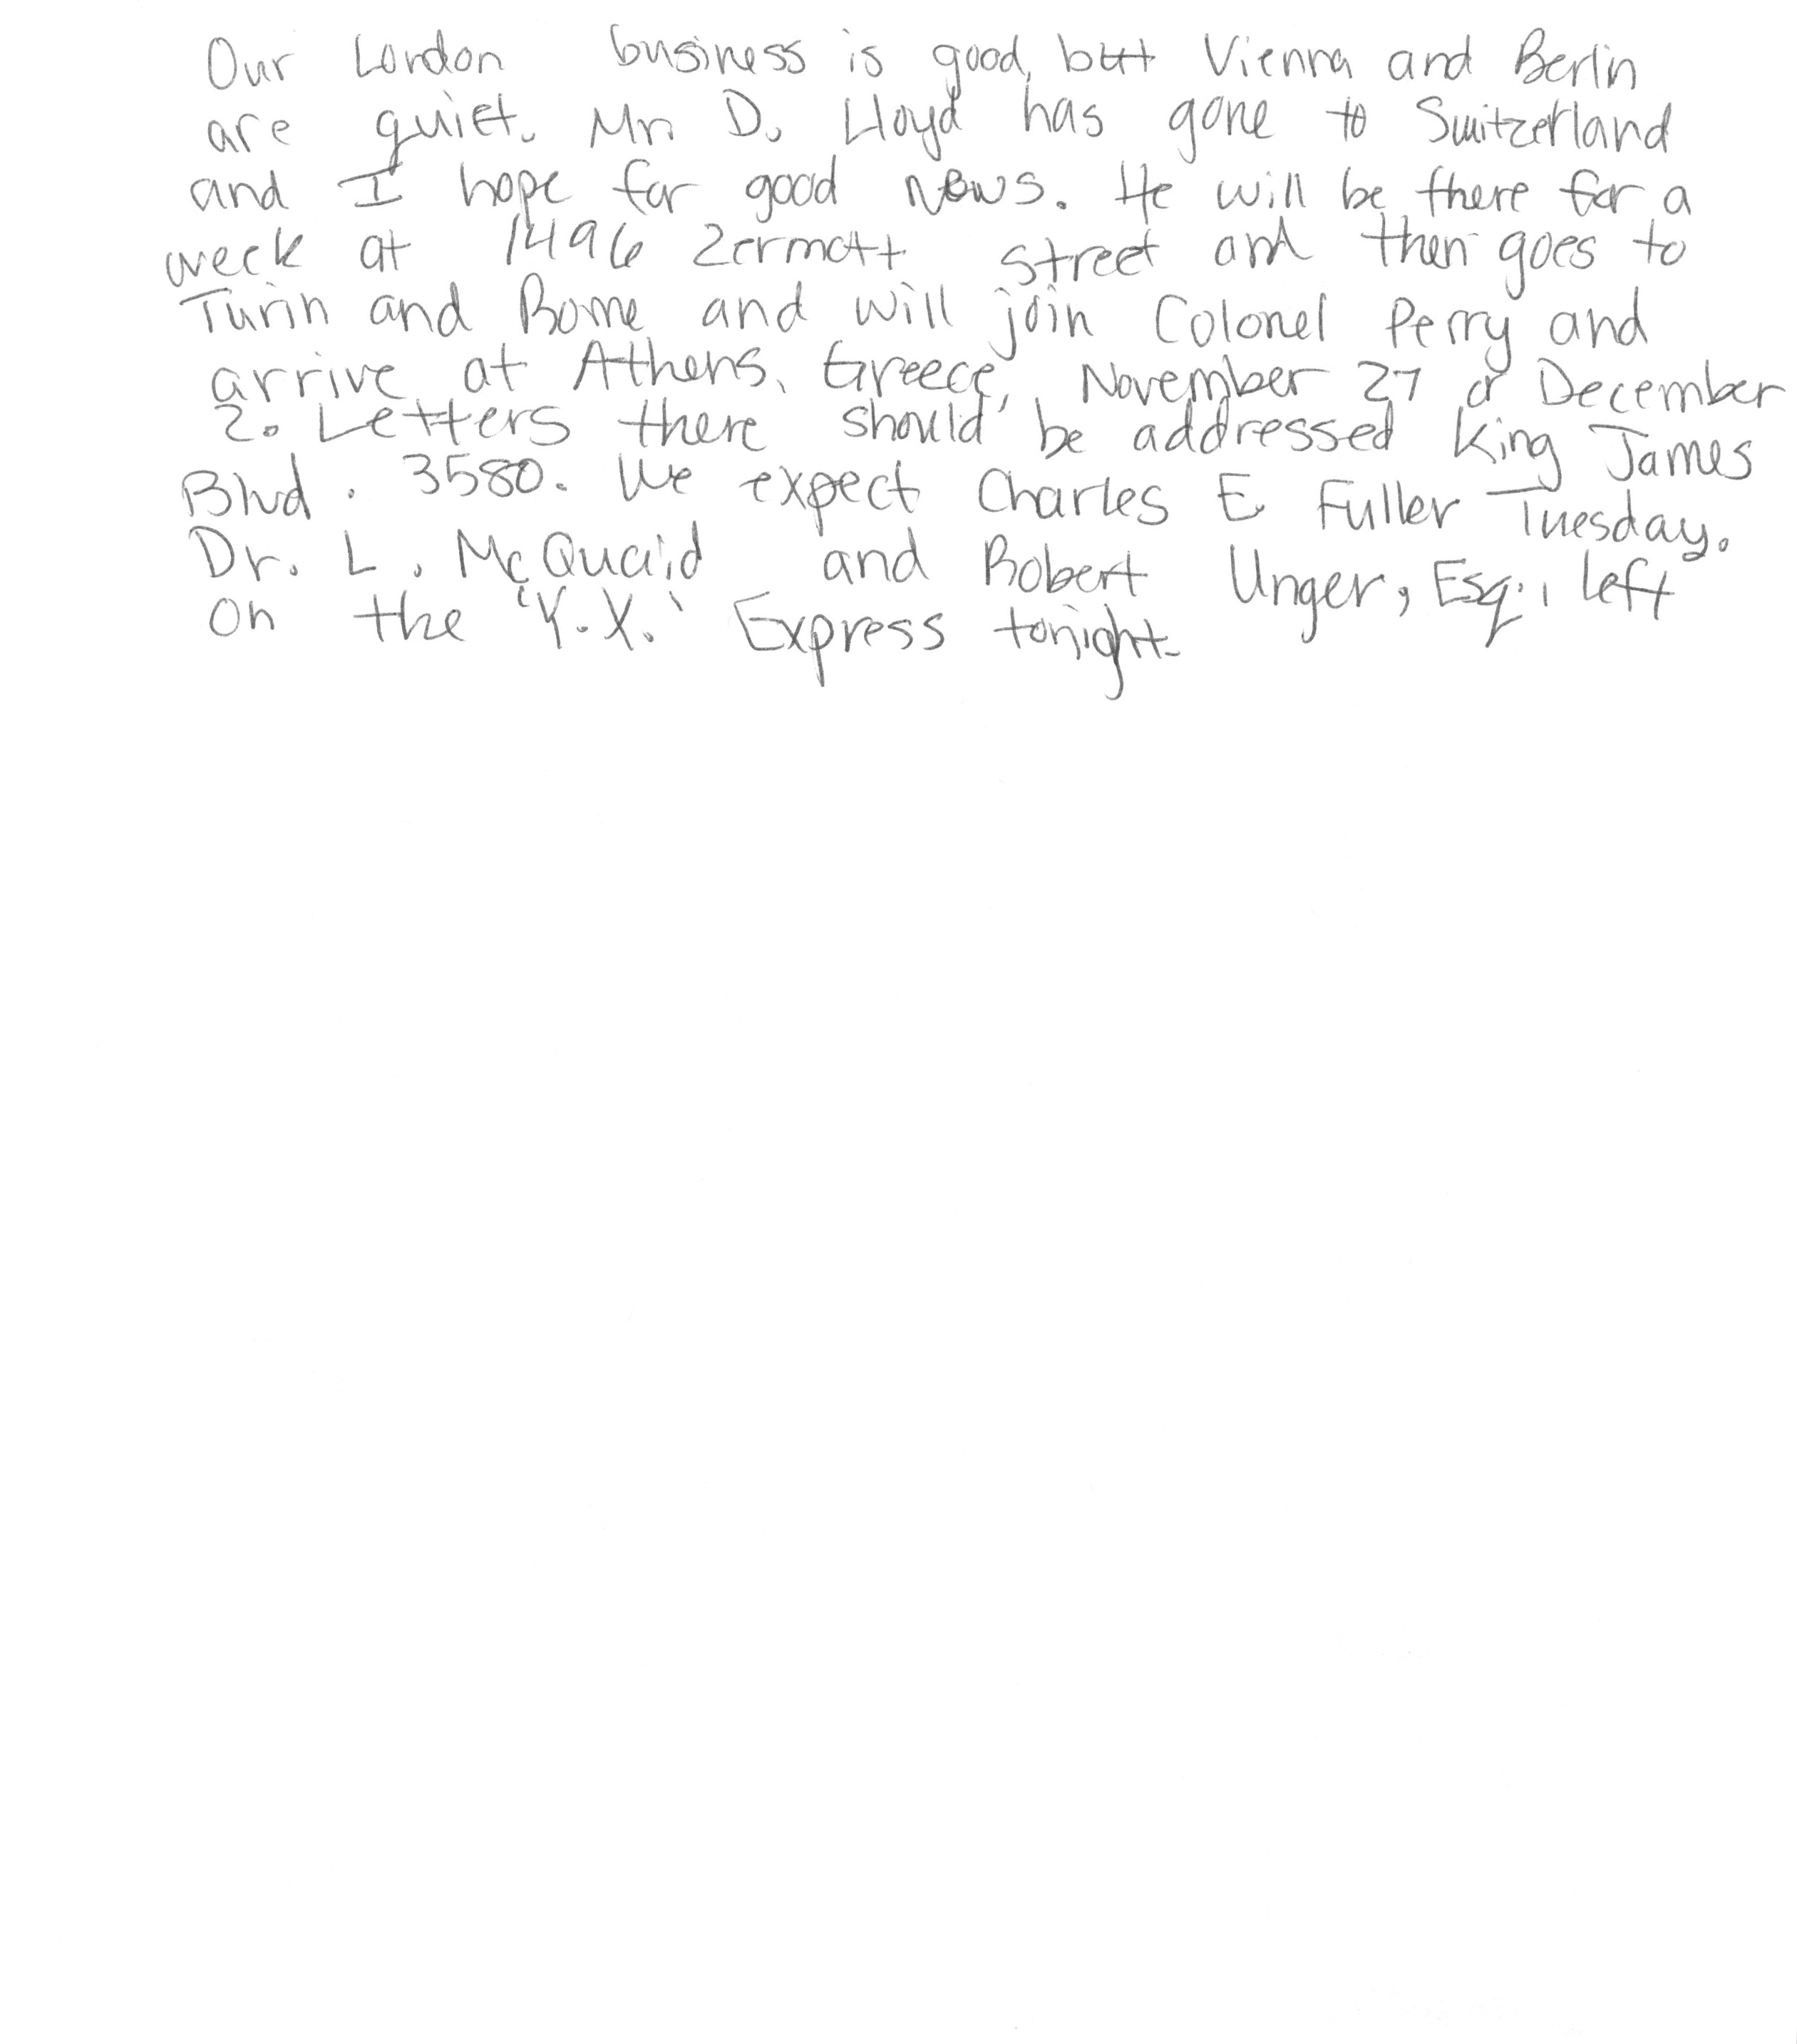 Our London business is good, but Vienna and Berlin
are quiet. Mr. D. Lloyd has gone to Switzerland
and I hope for good news. He will be there for a
week at 1496 Zermatt street and then goes to
Turin and Rome and will join Colonel Perry and
arrive at Athens, Greece, November 27 or December
2. Letters there should be addressed King James
Blvd. 3580. We expect Charles E. Fuller Tuesday.
Dr. L. McQuaid and Robert Unger, Esq., left
on the 'Y.X.' Express tonight.